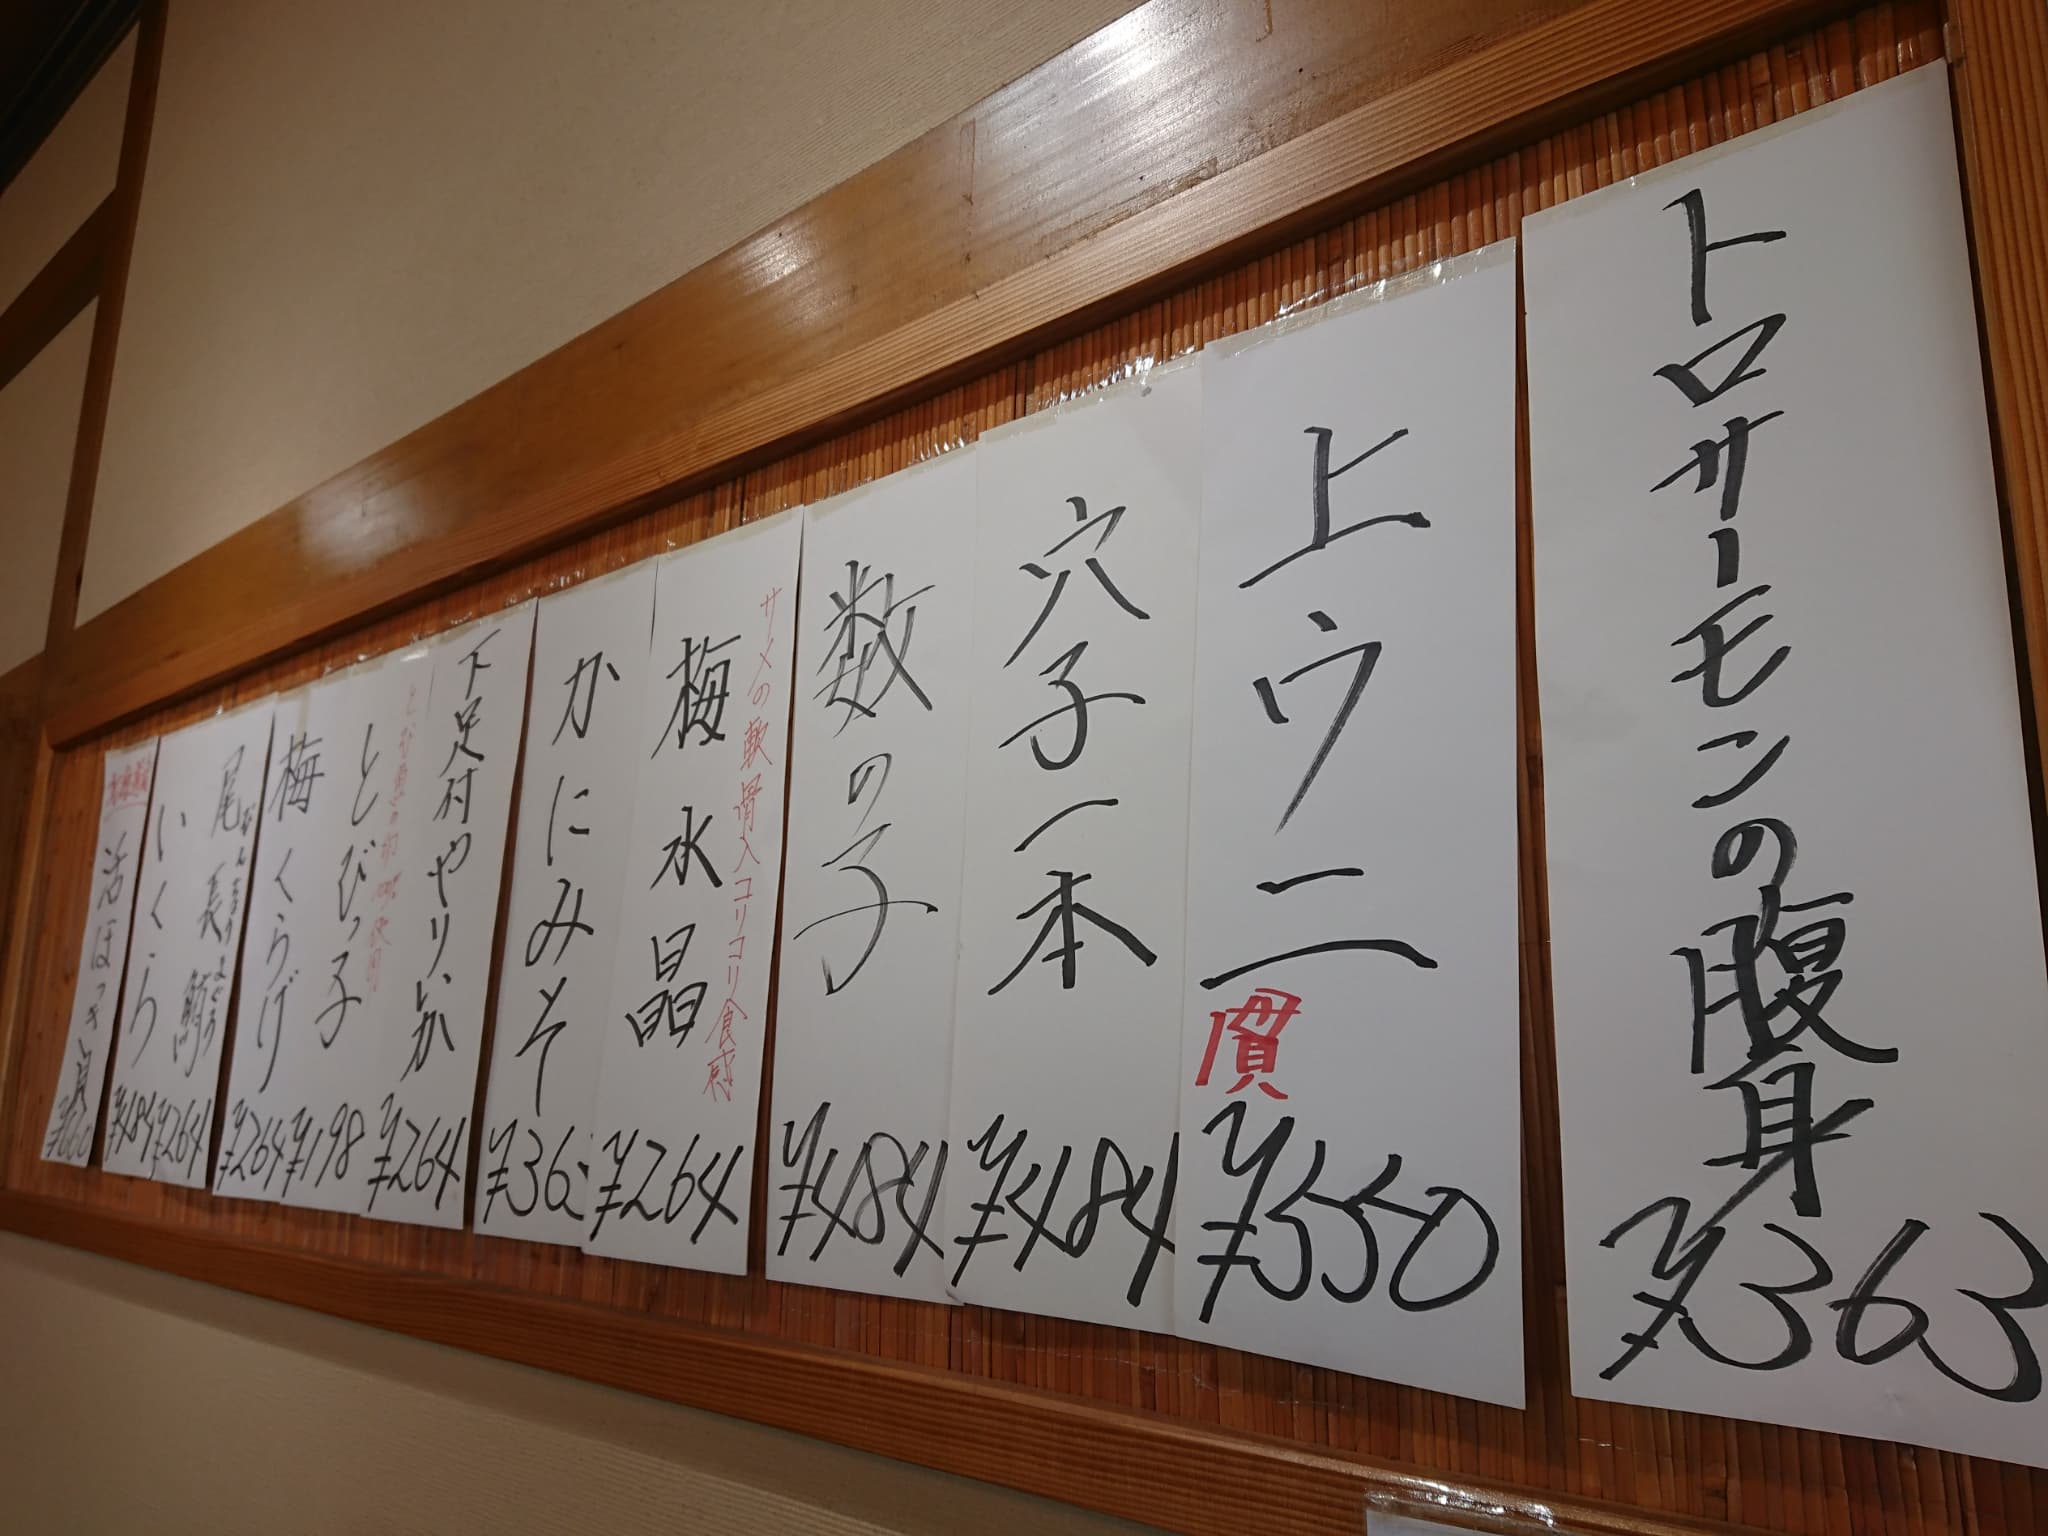 トロサーモンの腹身
¥363
上ウニ
貫
¥550
穴子一本
¥484
数の子
¥484
サメの軟骨入コリコリ食感
梅水晶
¥264
かにみそ
¥363
下足付やりいか
¥264
とびっ子
¥198
梅くらげ
¥264
尾長鮪
びんちょうまぐろ
¥264
いくら
¥484
活ほっき貝